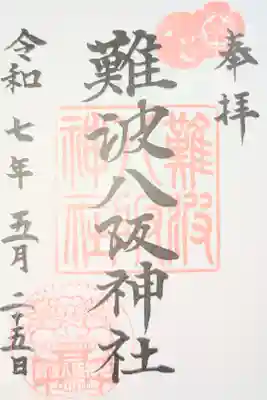 奉拝
難波八阪神社
難波八阪神社
令和七年五月二十五日